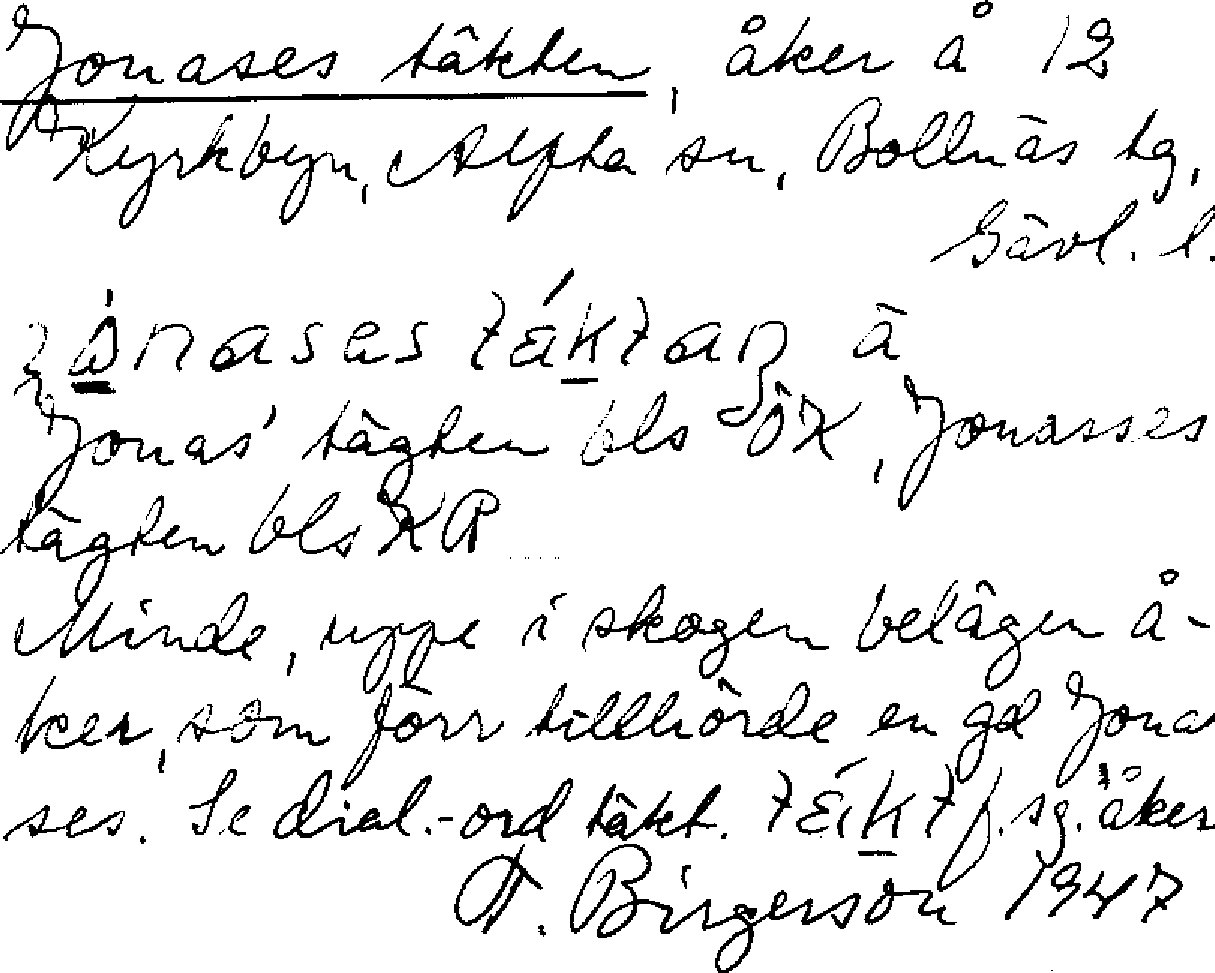 Jonases täkten, åker å 12
Kyrkbyn, Alfta sn, Bollnäs tg,
Gävl. l.
ä
Jonas' tägten bls ÖK, Jonasses
tägten bls KR
Minde, uppe i skogen belägen å-
ker, som förr tillhörde en gd Jona
ses. Se dial.-ord täkt. f. sg. 'åker
A. Birgerson 1947